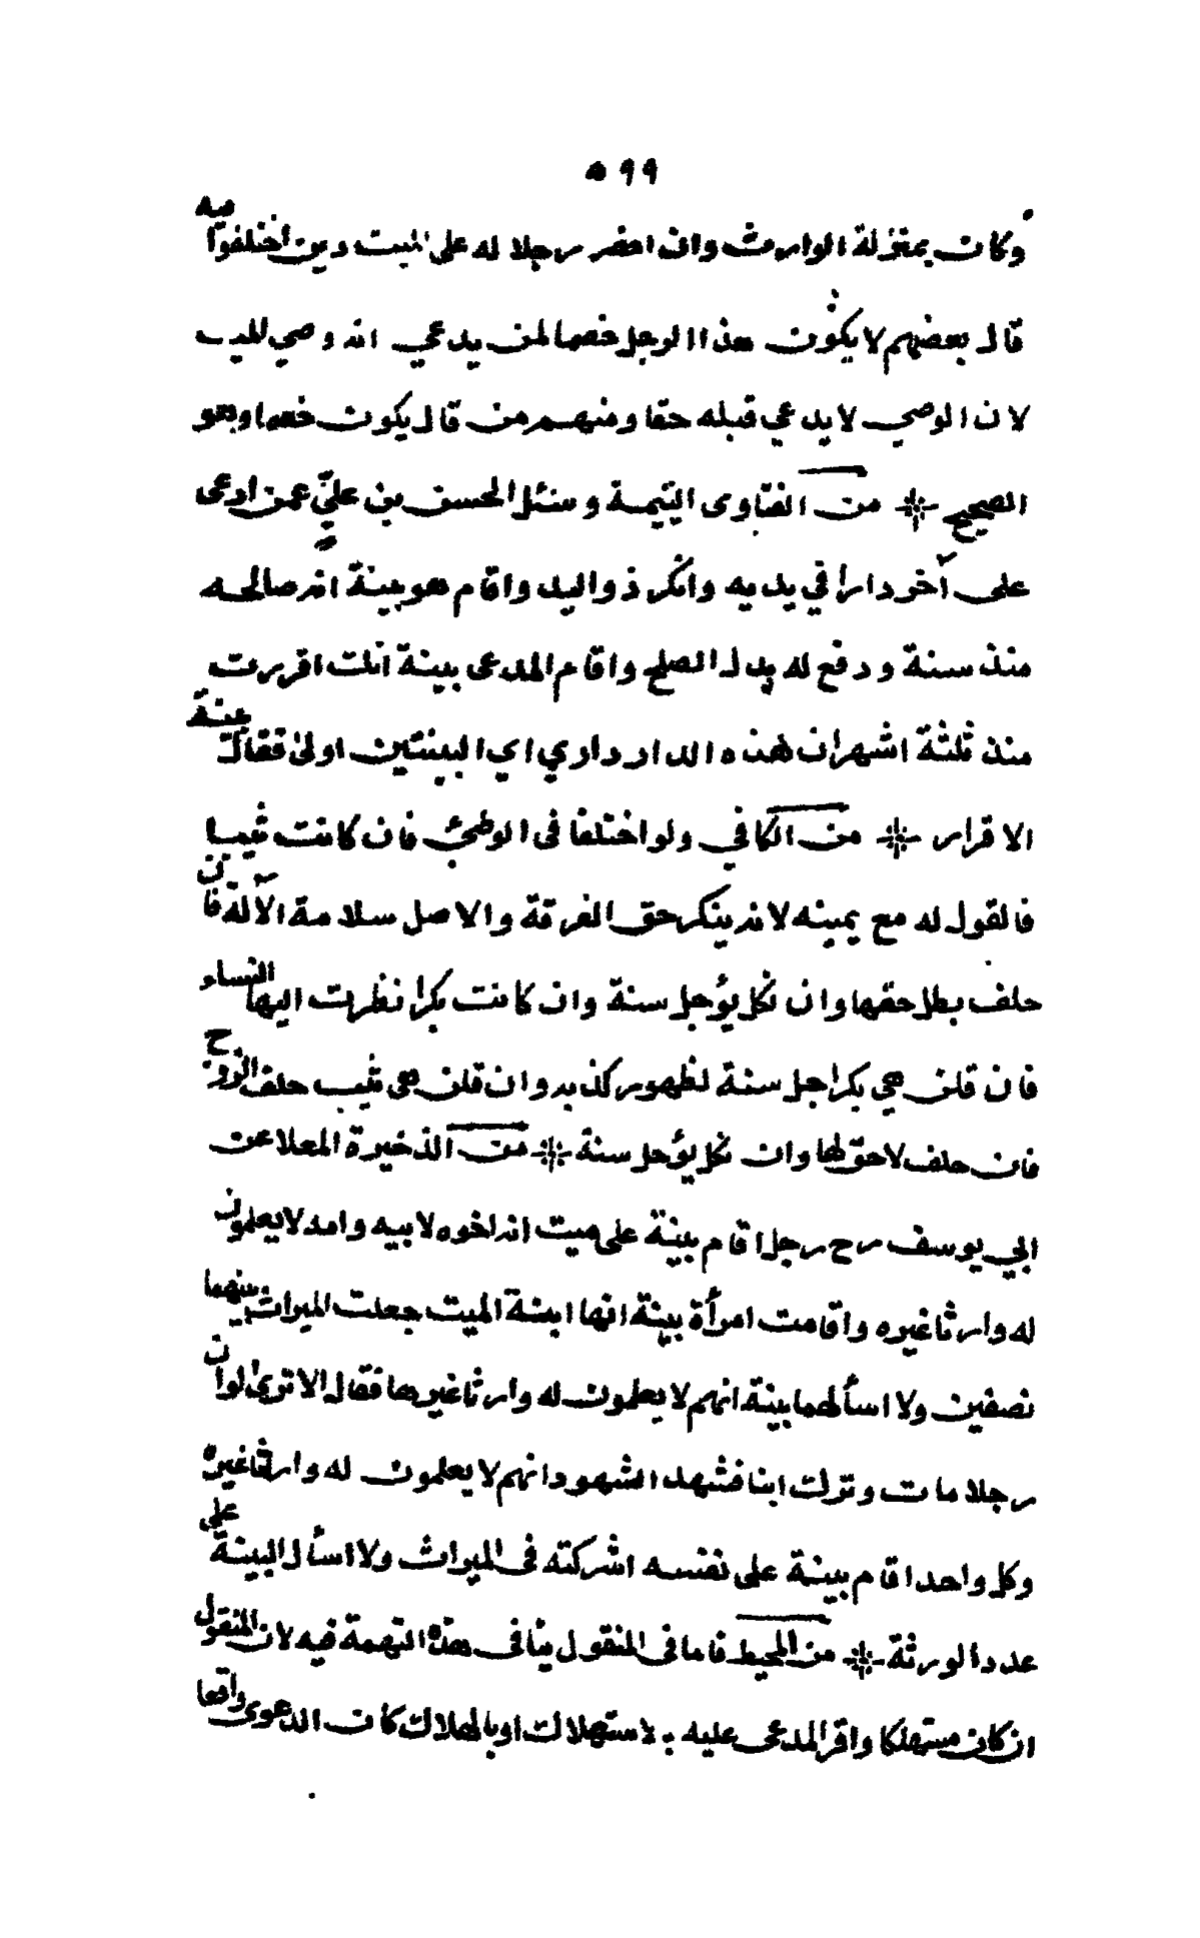 ٥٩٩
وكان بمنزلة الوارث وان احضر رجلا له على الميت دين اختلفوا فيه
قال بعضهم لا يكون هذا الرجل خصما لمن يدعي انه وصي للميت
لان الوصي لا يدعي قبله حقا ومنهم من قال يكون خصما وهو
الصحيح ❊ من الفتاوى اليتيمة وسئل الحسن بن عليّ عمن ادعى
على آخر دارا في يديه وانكر ذو اليد واقام هو بينة انه صالحه
منذ سنة ودفع له بدل الصلح واقام المدعى بينة انك اقررت
منذ ثلثة اشهر ان هذه الدار داري اي البينتين اولى فقال بينة
الاقرار ❊ من الكافي ولو اختلفا فى الوطئ فان كانت ثيبا
فالقول له مع يمينه لانه ينكر حق الفرقة والاصل سلامة الآلة فان
حلف بطل حقها وان نكل يؤجل سنة وان كانت بكرا نظرت اليها النساء
فان قلن هي بكر اجل سنة لظهور كذبه وان قلن هى ثيب حلف الزوج
فان حلف لا حق لها وان نكل يؤجل سنة ❊ من الذخيرة المعلا عن
ابي يوسف رح رجل اقام بينة على ميت انه اخوه لابيه وامه لا يعلمون
له وارثا غيره واقامت امرأة بينة انها ابنة الميت جعلت الميراث بينهما
نصفين ولا اسألهما بينة انهم لا يعلمون له وارثا غيرها فقال الا ترى لو ان
رجلا مات وترك ابنا فشهد الشهود انهم لا يعلمون له وارثا غيره
وكل واحد اقام بينة على نفسه اشركته فى الميراث ولا اسأل البينة على
عدد الورثة ❊ من المحيط فاما فى المنقول ينافى هذه التهمة فيه لان المنقول
ان كان مستهلكا واقر المدعى عليه بالاستهلاك او بالهلاك كان الدعوى واقعا